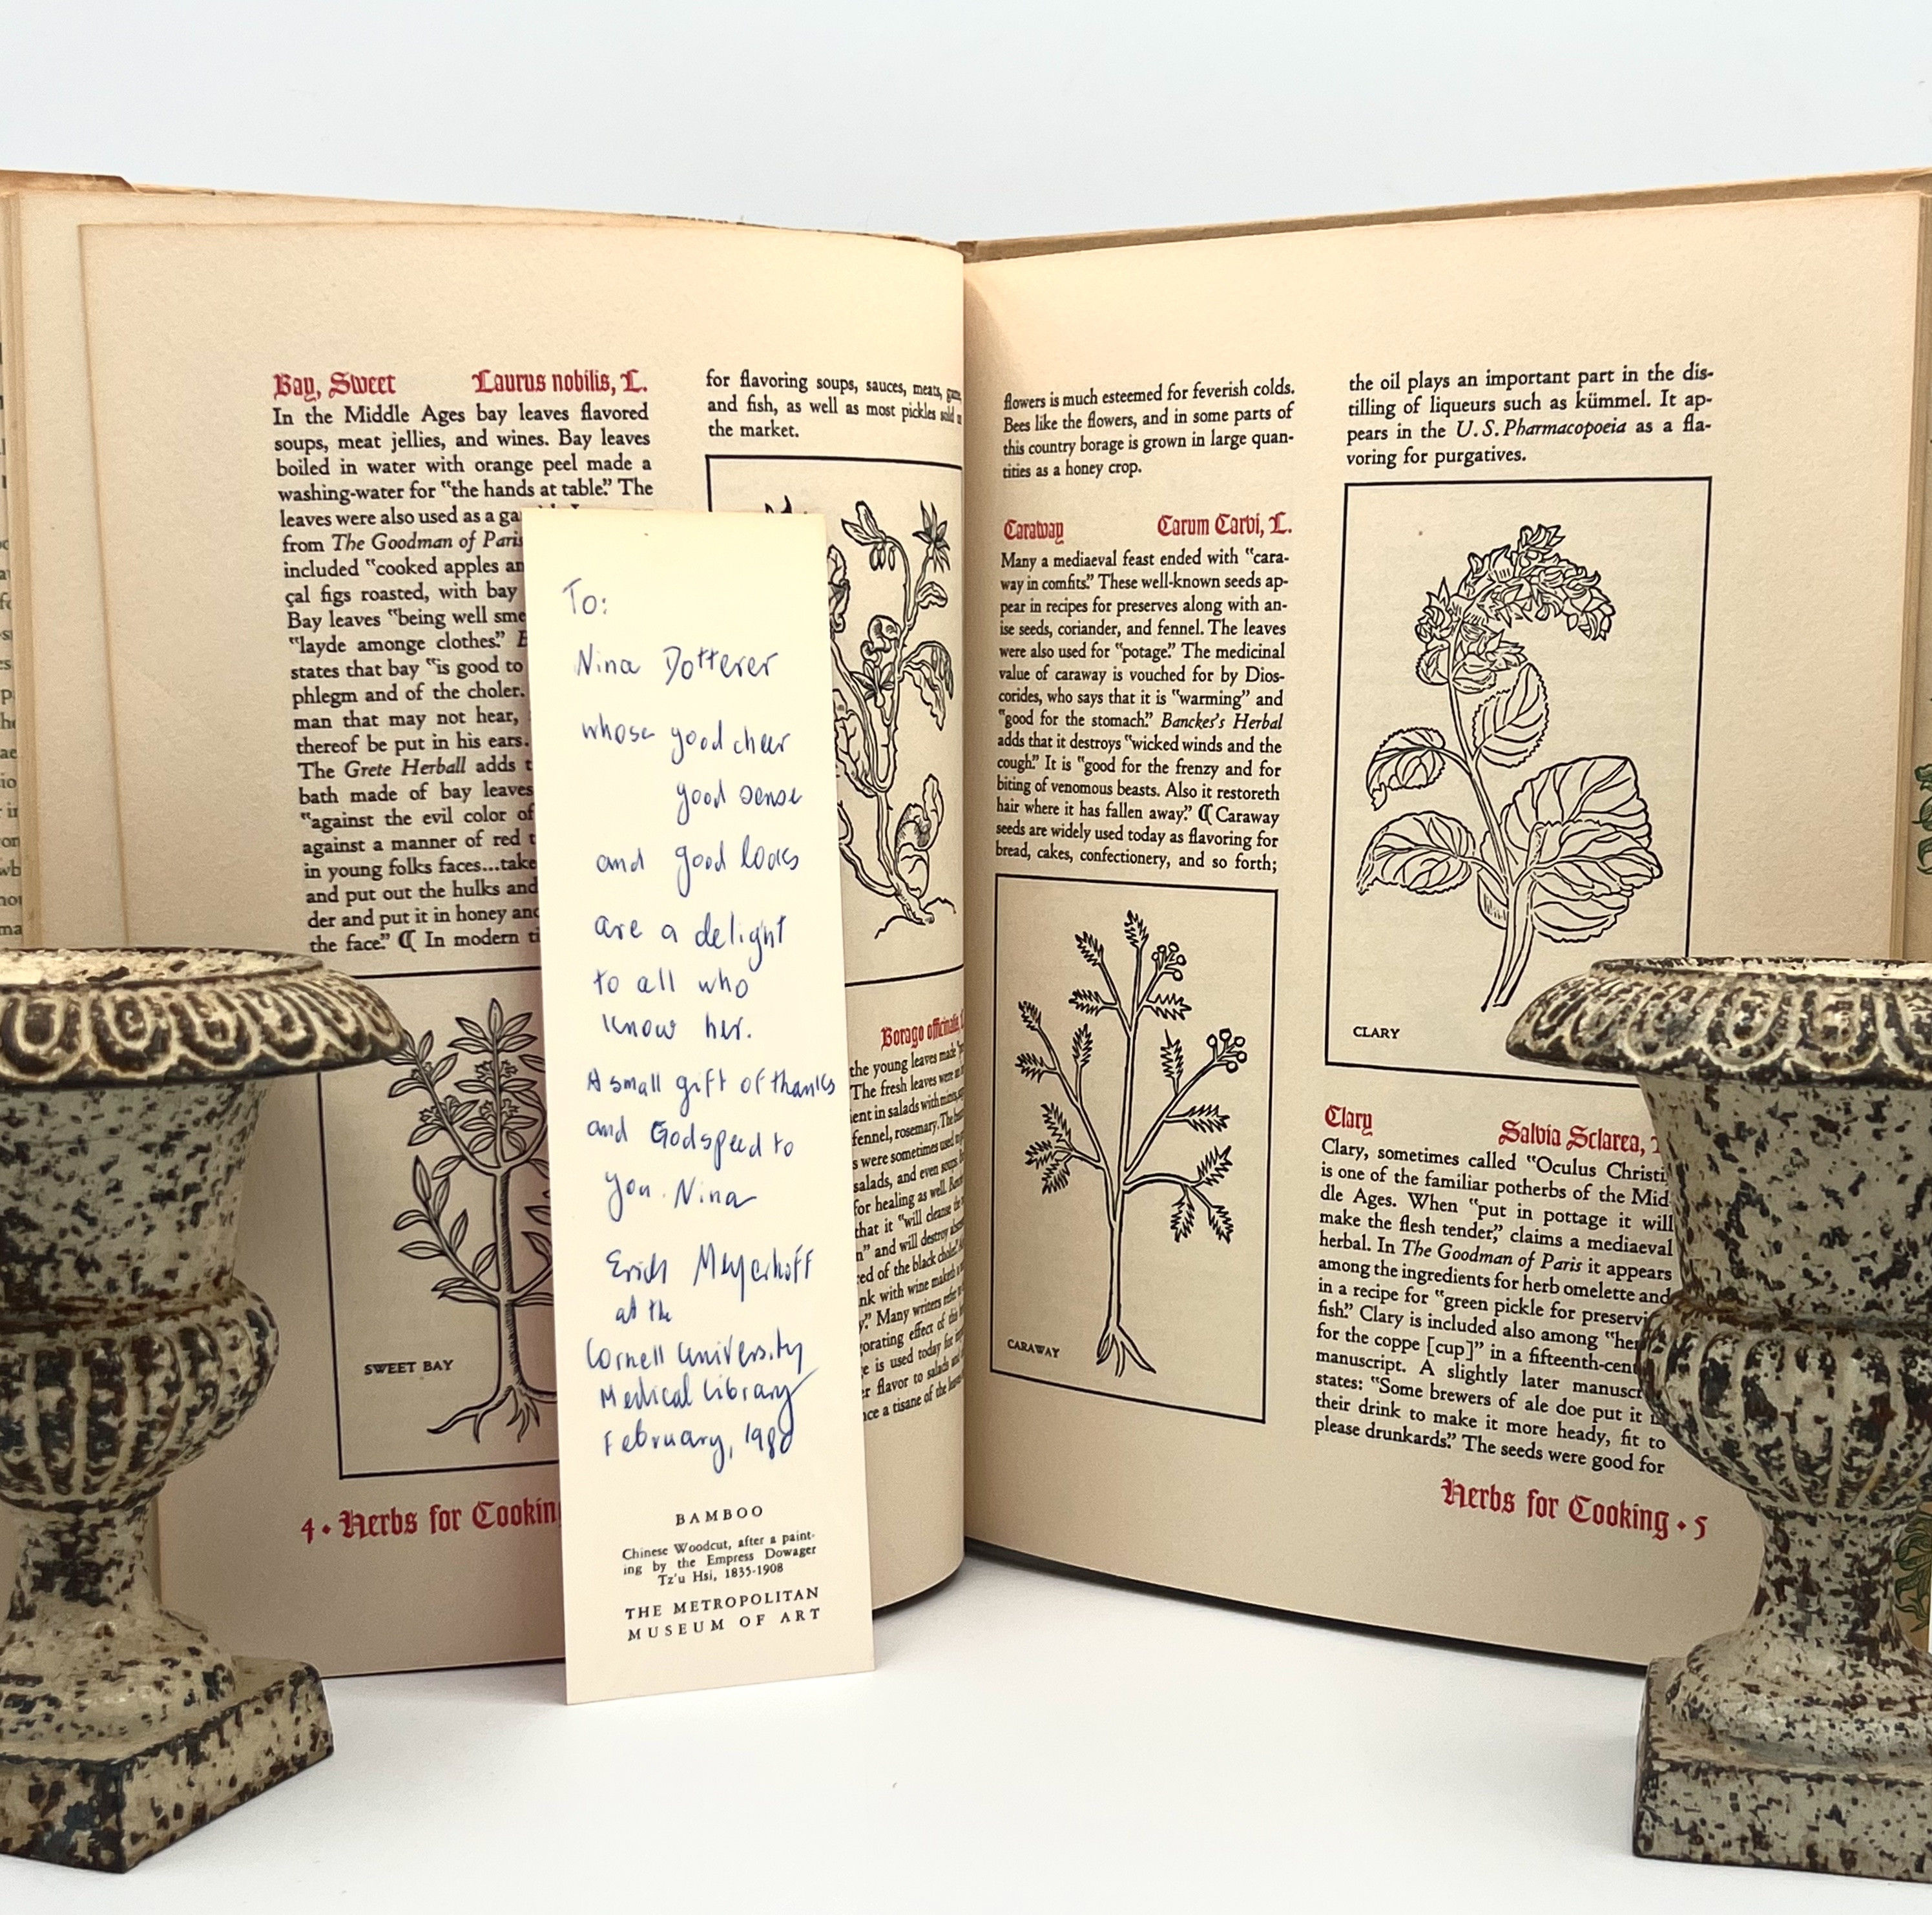 Bay, Sweet Laurus nobilis, L.
In the Middle Ages bay leaves flavored
soups, meat jellies, and wines. Bay leaves
boiled in water with orange peel made a
washing-water for "the hands at table." The
leaves were also used as a
from The Goodman of Paris
included "cooked apples
çal figs roasted, with bay
Bay leaves "being well
"layde amonge clothes."
states that bay "is good to
phlegm and of the choler.
man that may not hear,
thereof be put in his ears.
The Grete Herball adds
bath made of bay leaves
"against the evil color of
against a manner of red
in young folks faces...take
and put out the hulks and
der and put it in honey and
the face." ⁋ In modern
SWEET BAY
4 • Herbs for Cooking
for flavoring soups, sauces, meats, game,
and fish, as well as most pickles sold
the market.
Borago officinalis,
the young leaves made
The fresh leaves were
ient in salads with
fennel, rosemary. The
s were sometimes used
salads, and even soups.
for healing as well.
that it "will cleanse the
n" and will destroy
red of the black choler."
nk with wine maketh
y." Many writers
gorating effect of this
e is used today for
er flavor to salads and
nce a tisane of the
To:
Nina Dotterer
whose good cheer
good sense
and good looks
are a delight
to all who
know her.
A small gift of thanks
and Godspeed to
you. Nina
Erich Meyerhoff
at the
Cornell University
Medical Library
February, 1980
BAMBOO
Chinese Woodcut, after a paint-
ing by the Empress Dowager
Tz'u Hsi, 1835-1908
THE METROPOLITAN
MUSEUM OF ART
flowers is much esteemed for feverish colds.
Bees like the flowers, and in some parts of
this country borage is grown in large quan-
tities as a honey crop.
Caraway Carum Carvi, L.
Many a mediaeval feast ended with "cara-
way in comfits." These well-known seeds ap-
pear in recipes for preserves along with an-
ise seeds, coriander, and fennel. The leaves
were also used for "potage." The medicinal
value of caraway is vouched for by Dios-
corides, who says that it is "warming" and
"good for the stomach." Banckes's Herbal
adds that it destroys "wicked winds and the
cough." It is "good for the frenzy and for
biting of venomous beasts. Also it restoreth
hair where it has fallen away." ⁋ Caraway
seeds are widely used today as flavoring for
bread, cakes, confectionery, and so forth;
CARAWAY
the oil plays an important part in the dis-
tilling of liqueurs such as kümmel. It ap-
pears in the U.S. Pharmacopoeia as a fla-
voring for purgatives.
CLARY
Clary Salvia Sclarea,
Clary, sometimes called "Oculus Christi,
is one of the familiar potherbs of the Mid-
dle Ages. When "put in pottage it will
make the flesh tender," claims a mediaeval
herbal. In The Goodman of Paris it appears
among the ingredients for herb omelette and
in a recipe for "green pickle for
fish." Clary is included also among
for the coppe [cup]" in a
manuscript. A slightly later
states: "Some brewers of ale doe put it
their drink to make it more heady, fit to
please drunkards." The seeds were good for
Herbs for Cooking • 5